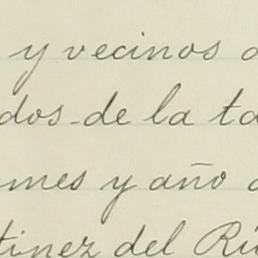 y vecinos d
dos - de la ta
mes y año d
tinez del Rí